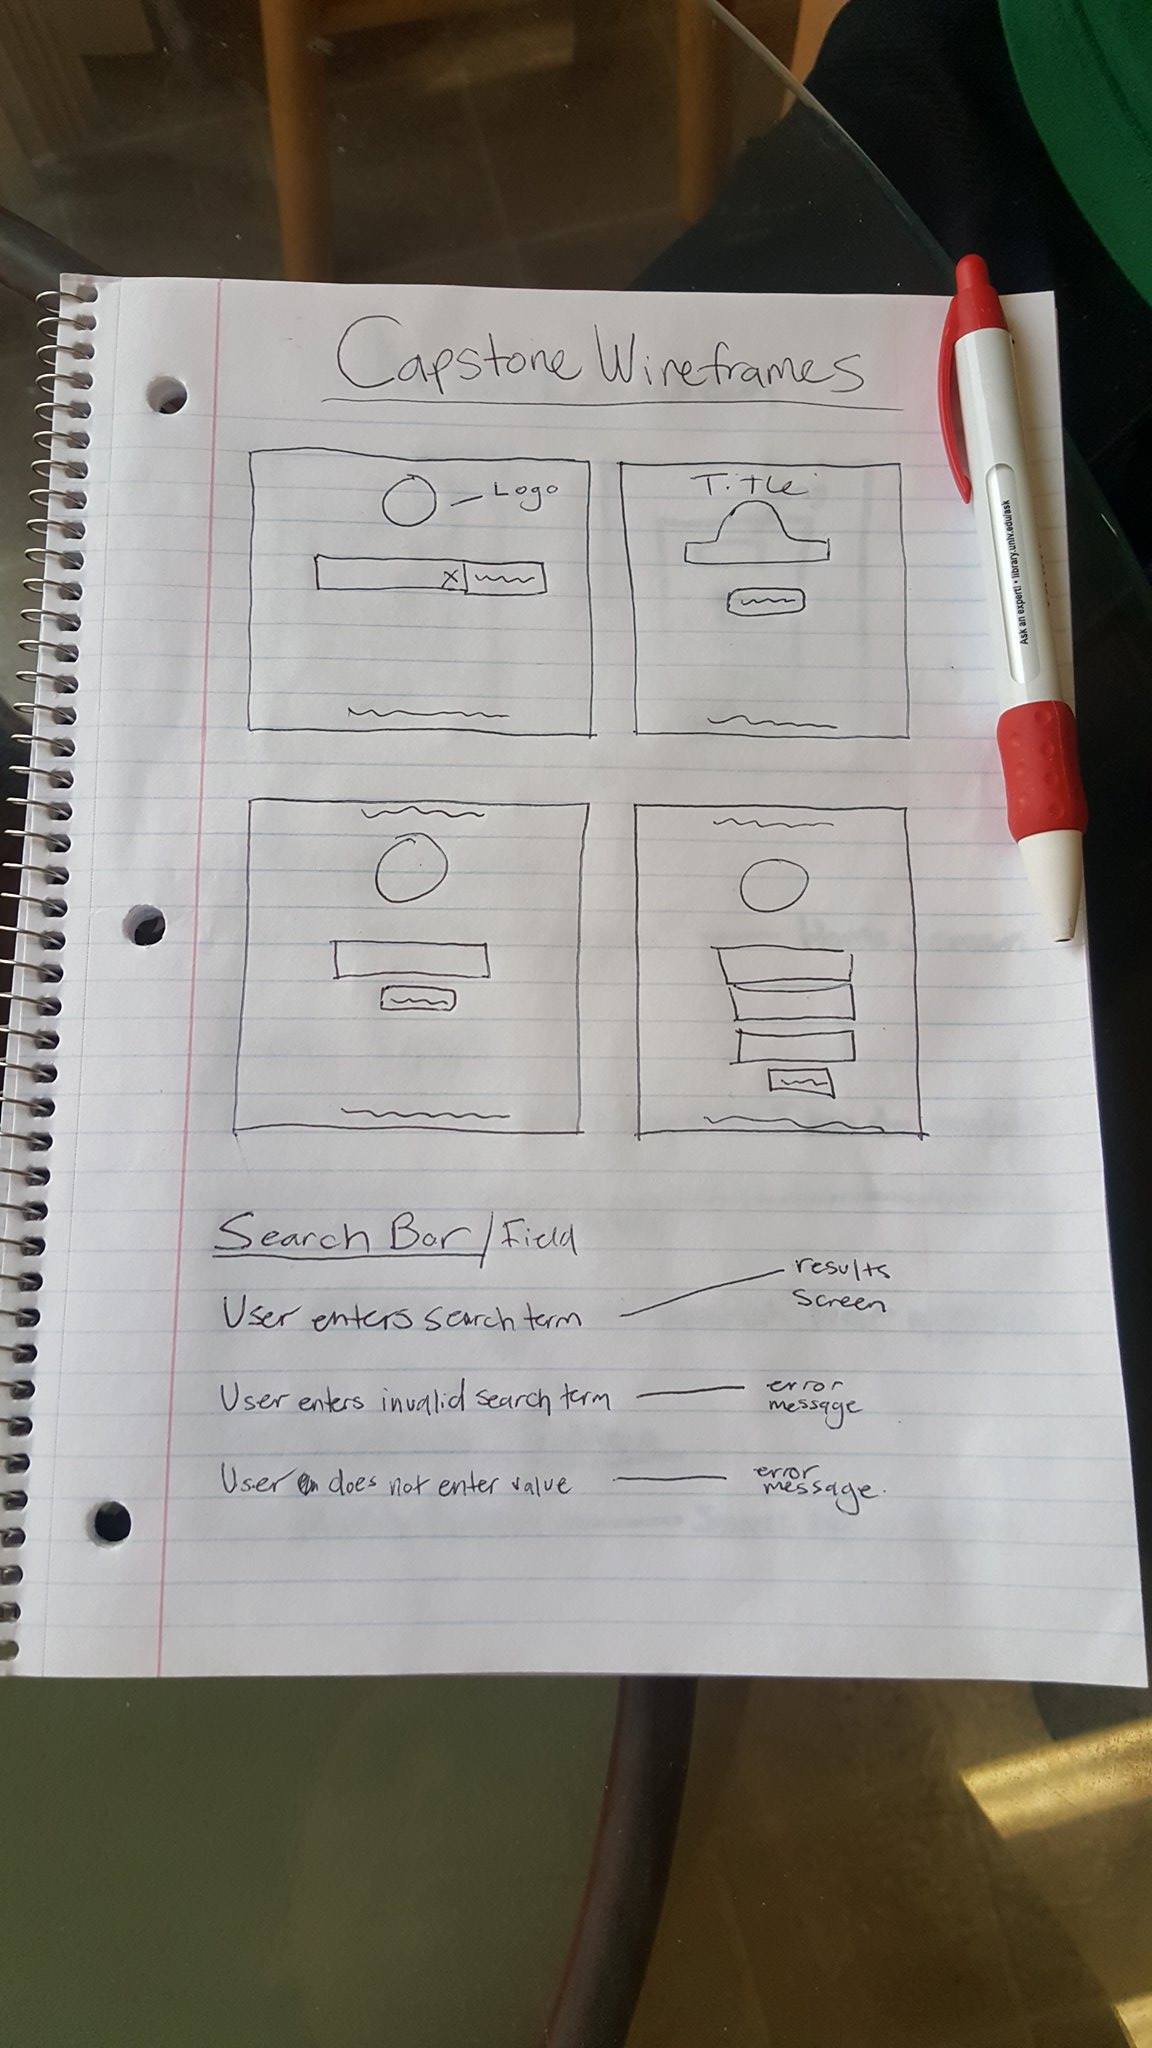 Capstone Wireframes
Logo
X
Title
Search Bar/Field
User enters search term
results
screen
User enters invalid search term
error
message
User does not enter value
error
message.
Ask an expert! • library.unlv.edu/ask